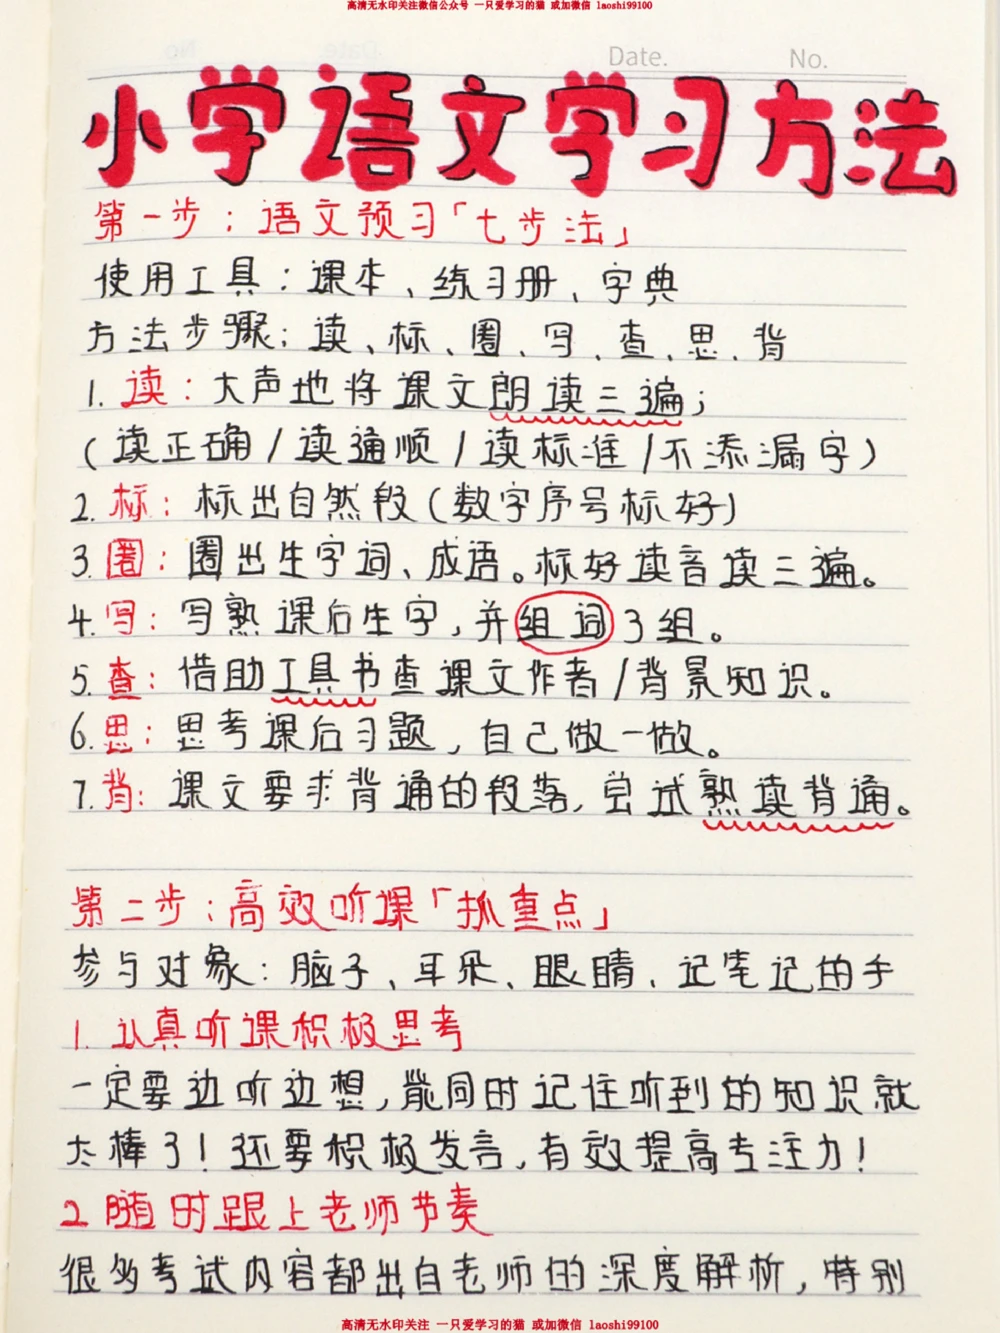 高清无水印关注微信公众号 一只爱学习的猫 或加微信 laoshi99100
Date. No.
小学语文学习方法
第一步:语文预习「七步法」
使用工具:课本、练习册、字典
方法步骤:读、标、圈、写、查、思、背
1.读:大声地将课文朗读三遍;
(读正确/读通顺/读标准/不添漏字)
2.标:标出自然段(数字序号标好)
3.圈:圈出生字词、成语。标好读音读三遍。
4.写:写熟课后生字,并组词3组。
5.查:借助工具书查课文作者/背景知识。
6.思:思考课后习题,自己做一做。
7.背:课文要求背诵的段落,尝试熟读背诵。
第二步:高效听课「抓重点」
参与对象:脑子、耳朵、眼睛、记笔记的手
1.认真听课积极思考
一定要边听边想,能同时记住听到的知识就
太棒了!还要积极发言,有效提高专注力!
2.随时跟上老师节奏
很多考试内容都出自老师的深度解析,特别
高清无水印关注 一只爱学习的猫 或加微信 laoshi99100